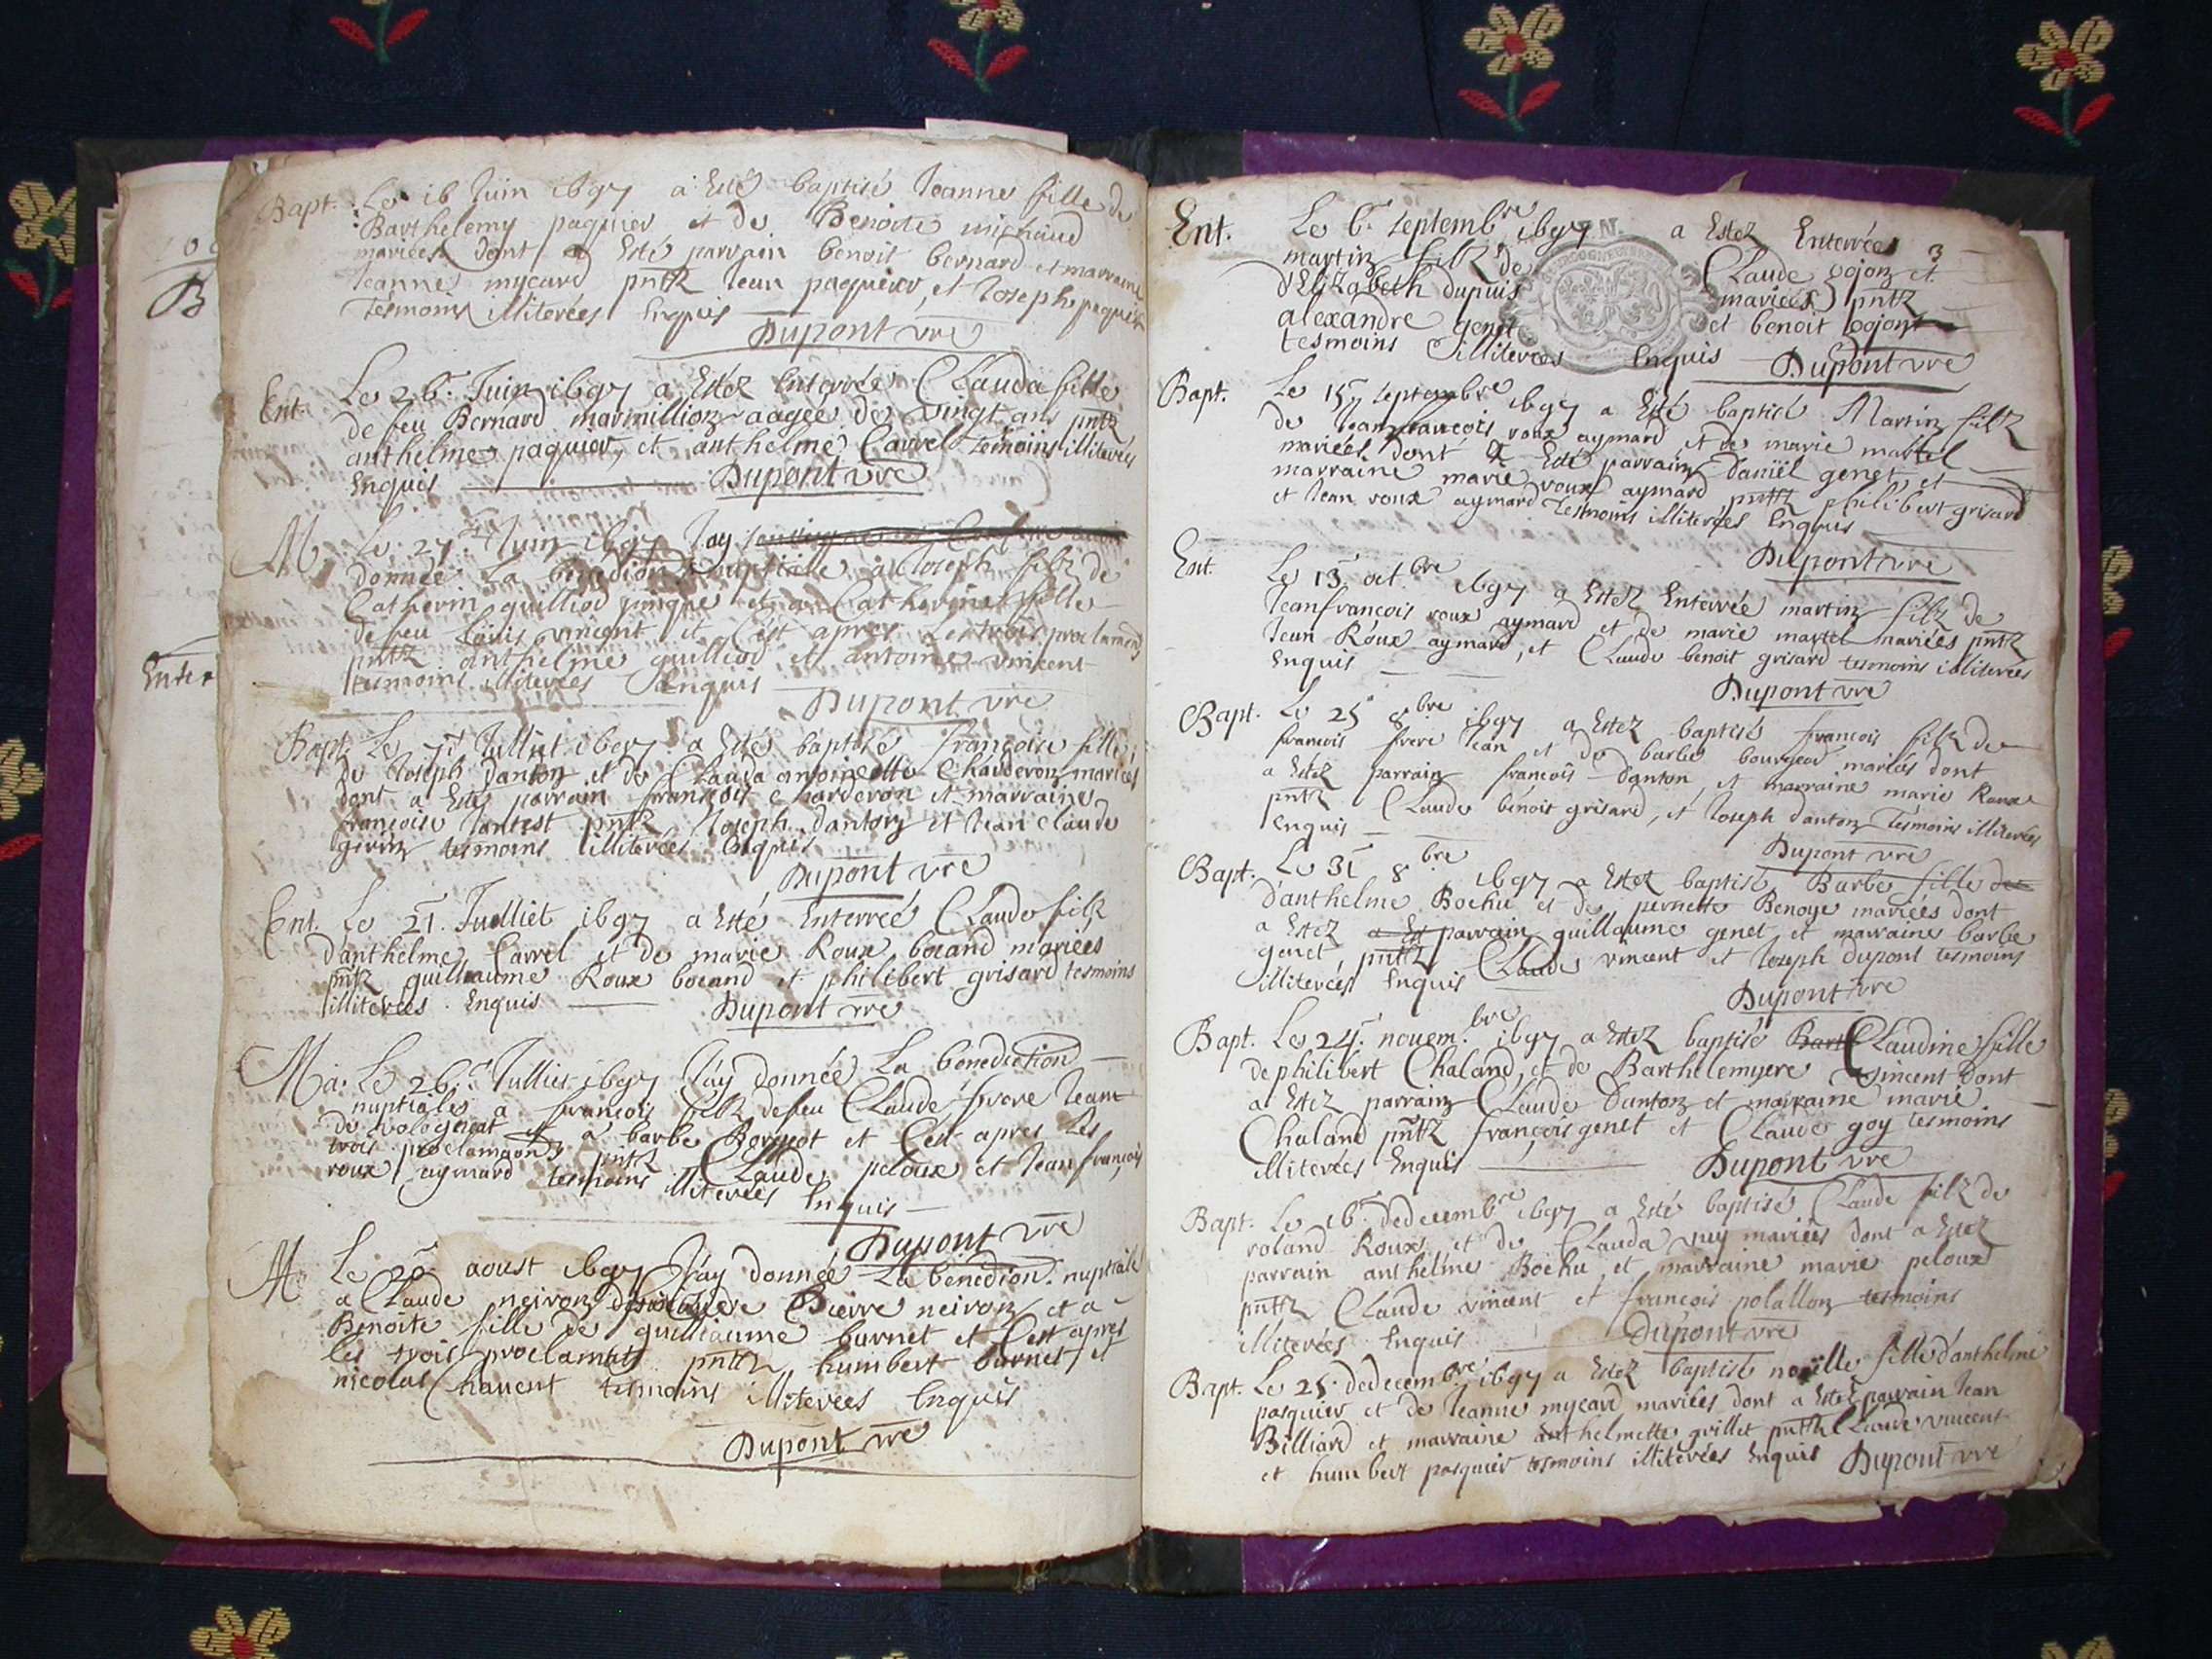 Bapt. Le 16 Juin 1697 a Esté baptisé Jeanne fille de
Barthelemy paquier et de Benoite michaud
mariées dont a Esté parrain benoit bernard et marraine
Jeanne mycard pntz Jean paquier, et Joseph paquier
tesmoins illiterées Enquis
Dupont vre
Ent. Le 26. Juin 1697 a Estez Enterrée Clauda fille
de feu Bernard marmillion aagée de vingt ans pntz
anthelme paquier, et anthelme Carrel temoins illiterés
Enquis Dupont vre
M Le 27. Juin 1697 Jay
donnée La benediction nuptialle a Joseph filz de
Catherin guilliod et a Catherine fille
de feu Louis vincent et C'est apres Les trois proclamaons
pntz anthelme guilliod et antoine vincent
tesmoins illiterées Enquis
Dupont vre
Bapt. Le 7. Julliet 1697 a Esté baptisé françoise fille
de Joseph danton et de Clauda antoinette Charderon mariées
dont a Esté parrain francois Charderon et marraine
françoise Jantest pntz Joseph danton et Jean Claude
tesmoins illiterées Enquis
Dupont vre
Ent. Le 21. Juilliet 1697 a Esté Enterreé Claude filz
d'anthelme Carrel et de marie Roux bocand mariées
pntz guilliaume Roux bocand et philibert grisard tesmoins
illiterées Enquis Dupont vre
Ma. Le 26. Julliet 1697 J'ay donnée La benediction
nuptialle a francois filz de feu Claude frere Jean
de et a barbe Borgeot et C'est apres Les
trois proclamaons pntz Claude peloux et Jean francois
roux aymard tesmoins illiterées Enquis
Dupont vre
M. Le 20 aoust 1697 J'ay donnée La benedion. nuptiale
a Claude neiron Pierre neiron et a
Benoite fille de guilliaume burnet et C'est apres
les trois proclamats pntz humbert burnet et
nicolas Chavent tesmoins illiterees Enquis
Dupont vre
3
Ent. Le 6. septembre 1697 a Estez Enterrée
martin filz de Claude gojon et
d'Elizabeth dupuis mariées pntz
alexandre genet et benoit gojon
tesmoins illiterées Enquis Dupont vre
Bapt. Le 15. septembre 1697 a Esté baptisé Martin filz
de Jeanfrancois roux aymard et de marie martel
mariées dont a Esté parrain daniel genet, et
marraine marie roux aymard pntz philibert grisard
et Jean roux aymard tesmoins illiterées Enquis
Dupont vre
Ent. Le 13. octbre 1697 a Estez Enterrée martin filz de
Jeanfrancois roux aymard et de marie martel mariées pntz
Jean Roux aymard, et Claude benoit grisard tesmoins illiterées
Enquis Dupont vre
Bapt. Le 25 8bre 1697 a Estez baptisé francois filz de
francois frere Jean et de barbe bourgeod mariées dont
a Estez parrain francois danton, et marraine marie Roux
pntz Claude benoit grisard, et Joseph danton tesmoins illiterées
Enquis Dupont vre
Bapt. Le 31 8bre 1697 a Estez baptisé Barbe fille de
d'anthelme Bochu et de pernette Benoye mariées dont
a Estez a Est parrain guillaume genet et marraine barbe
genet, pntz Claude vincent et Joseph dupont tesmoins
illiterées Enquis Dupont vre
Bapt. Le 24. novem.bre 1697 a Estez baptisé Bart Claudine fille
de philibert Chaland, et de Barthelemyere vincent dont
a Estez parrain Claude danton et marraine marie
Chaland pntz françois genet et Claude goy tesmoins
illiterées Enquis Dupont vre
Bapt. Le 16. dedecembre 1697 a Esté baptisé Claude filz de
roland Roux et de Clauda vuy mariées dont a Estez
parrain anthelme Bochu et marraine marie peloux
pntz Claude vincent et francois polallon tesmoins
illiterées Enquis Dupont vre
Bapt. Le 25. dedecembre 1697 a Estez baptisé noëlle fille d'anthelme
pasquier et de Jeanne mycard mariées dont a Estez parrain Jean
Billiard et marraine anthelmette grillet pntz Claude vincent
et humbert pasquier tesmoins illiterées Enquis Dupont vre
Enter